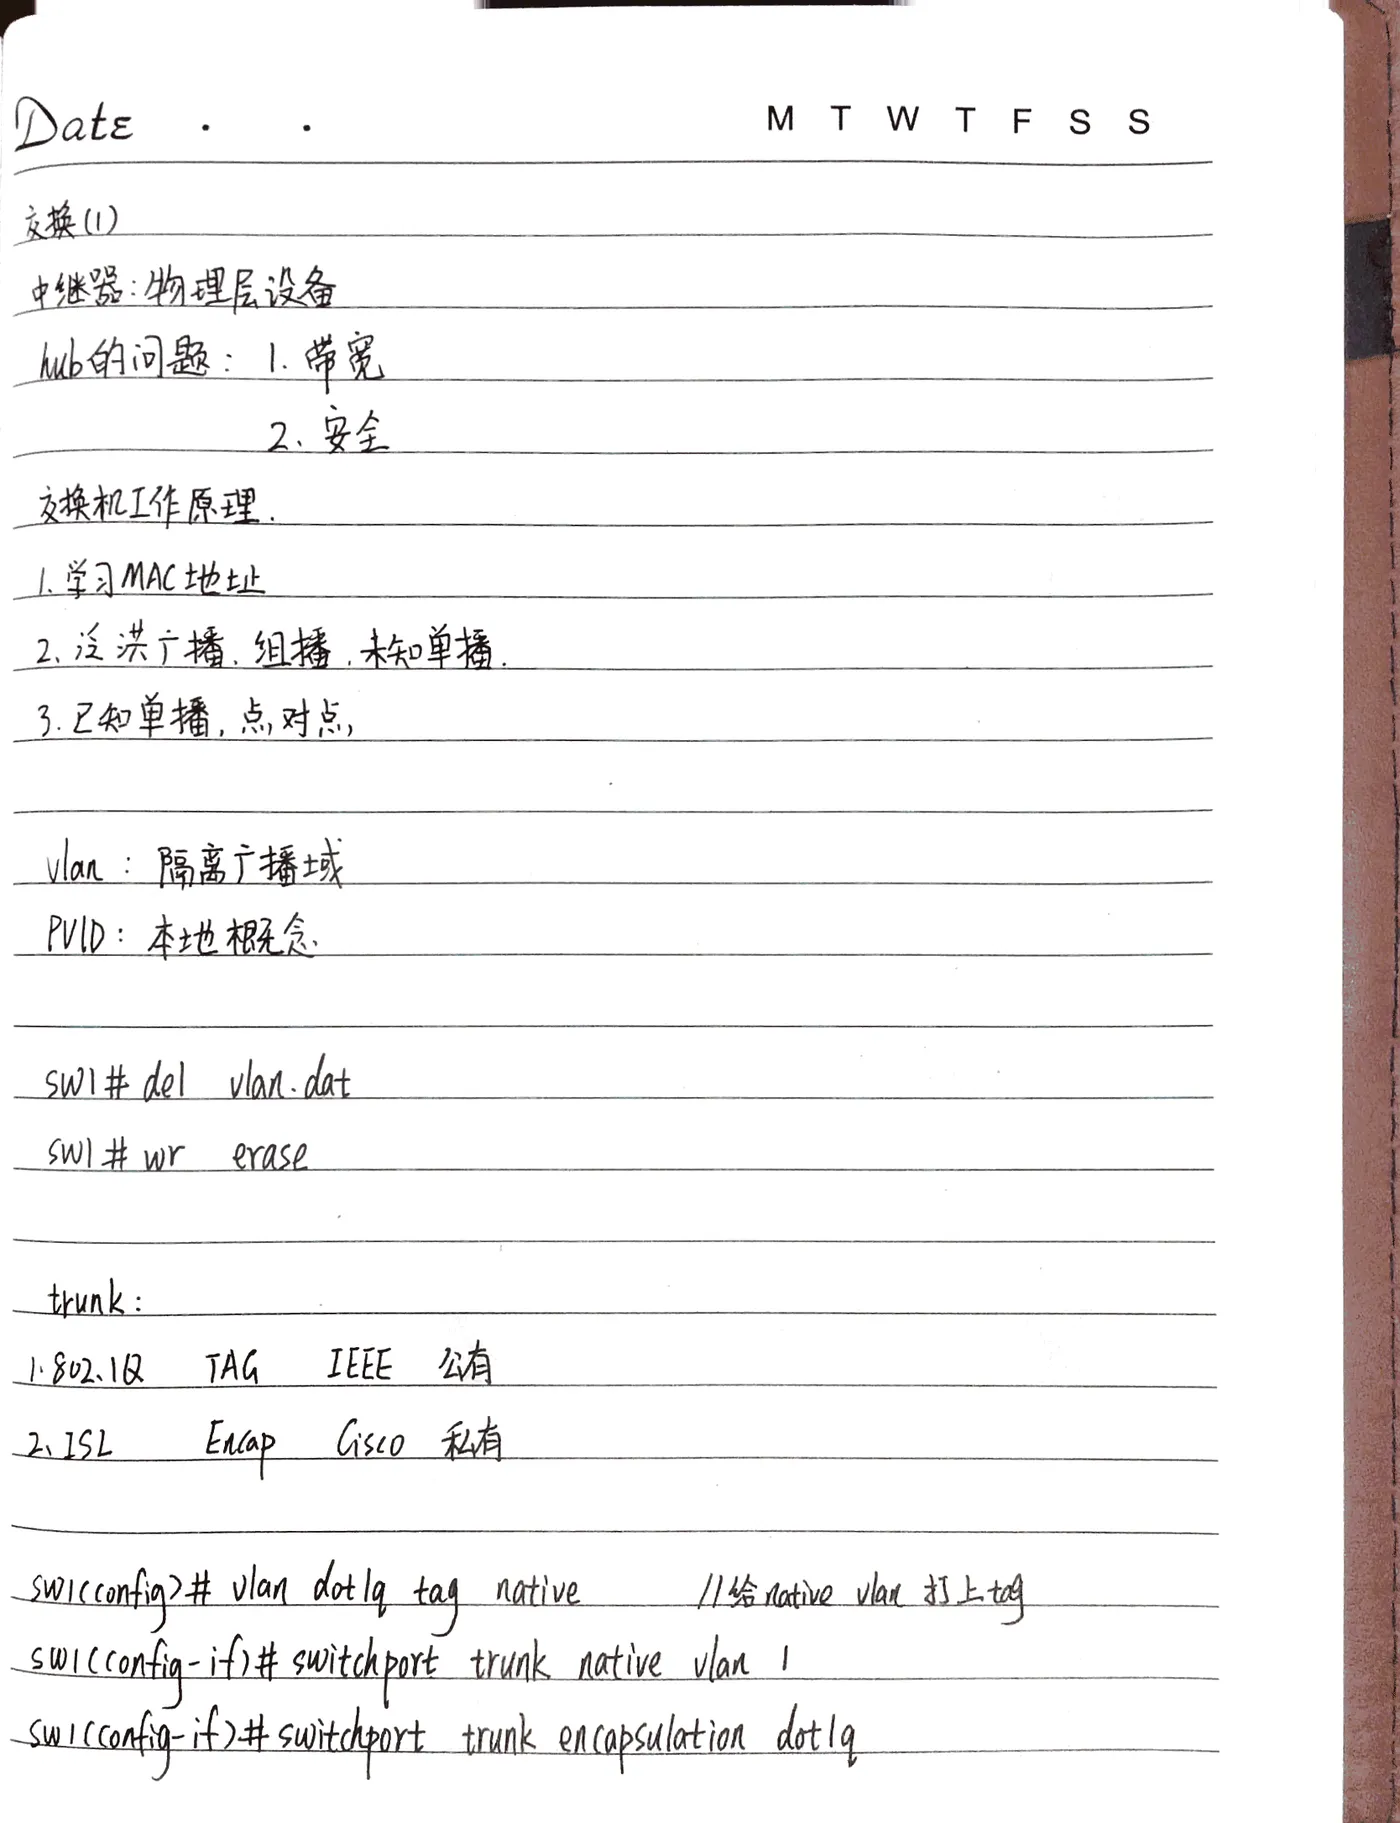 Date . . M T W T F S S
交换(1)
中继器:物理层设备
hub的问题: 1. 带宽
2、安全
交换机工作原理.
1.学习MAC地址
2、泛洪广播、组播、未知单播.
3.已知单播,点对点,
vlan: 隔离广播域
PVID: 本地概念.
SW1# del vlan.dat
SW1# wr erase
trunk:
1.802.1Q TAG IEEE 公有
2、ISL Encap Cisco 私有
SW1(config)# vlan dot1q tag native //给native vlan 打上tag
SW1(config-if)# switchport trunk native vlan 1
SW1(config-if)# switchport trunk encapsulation dot1q